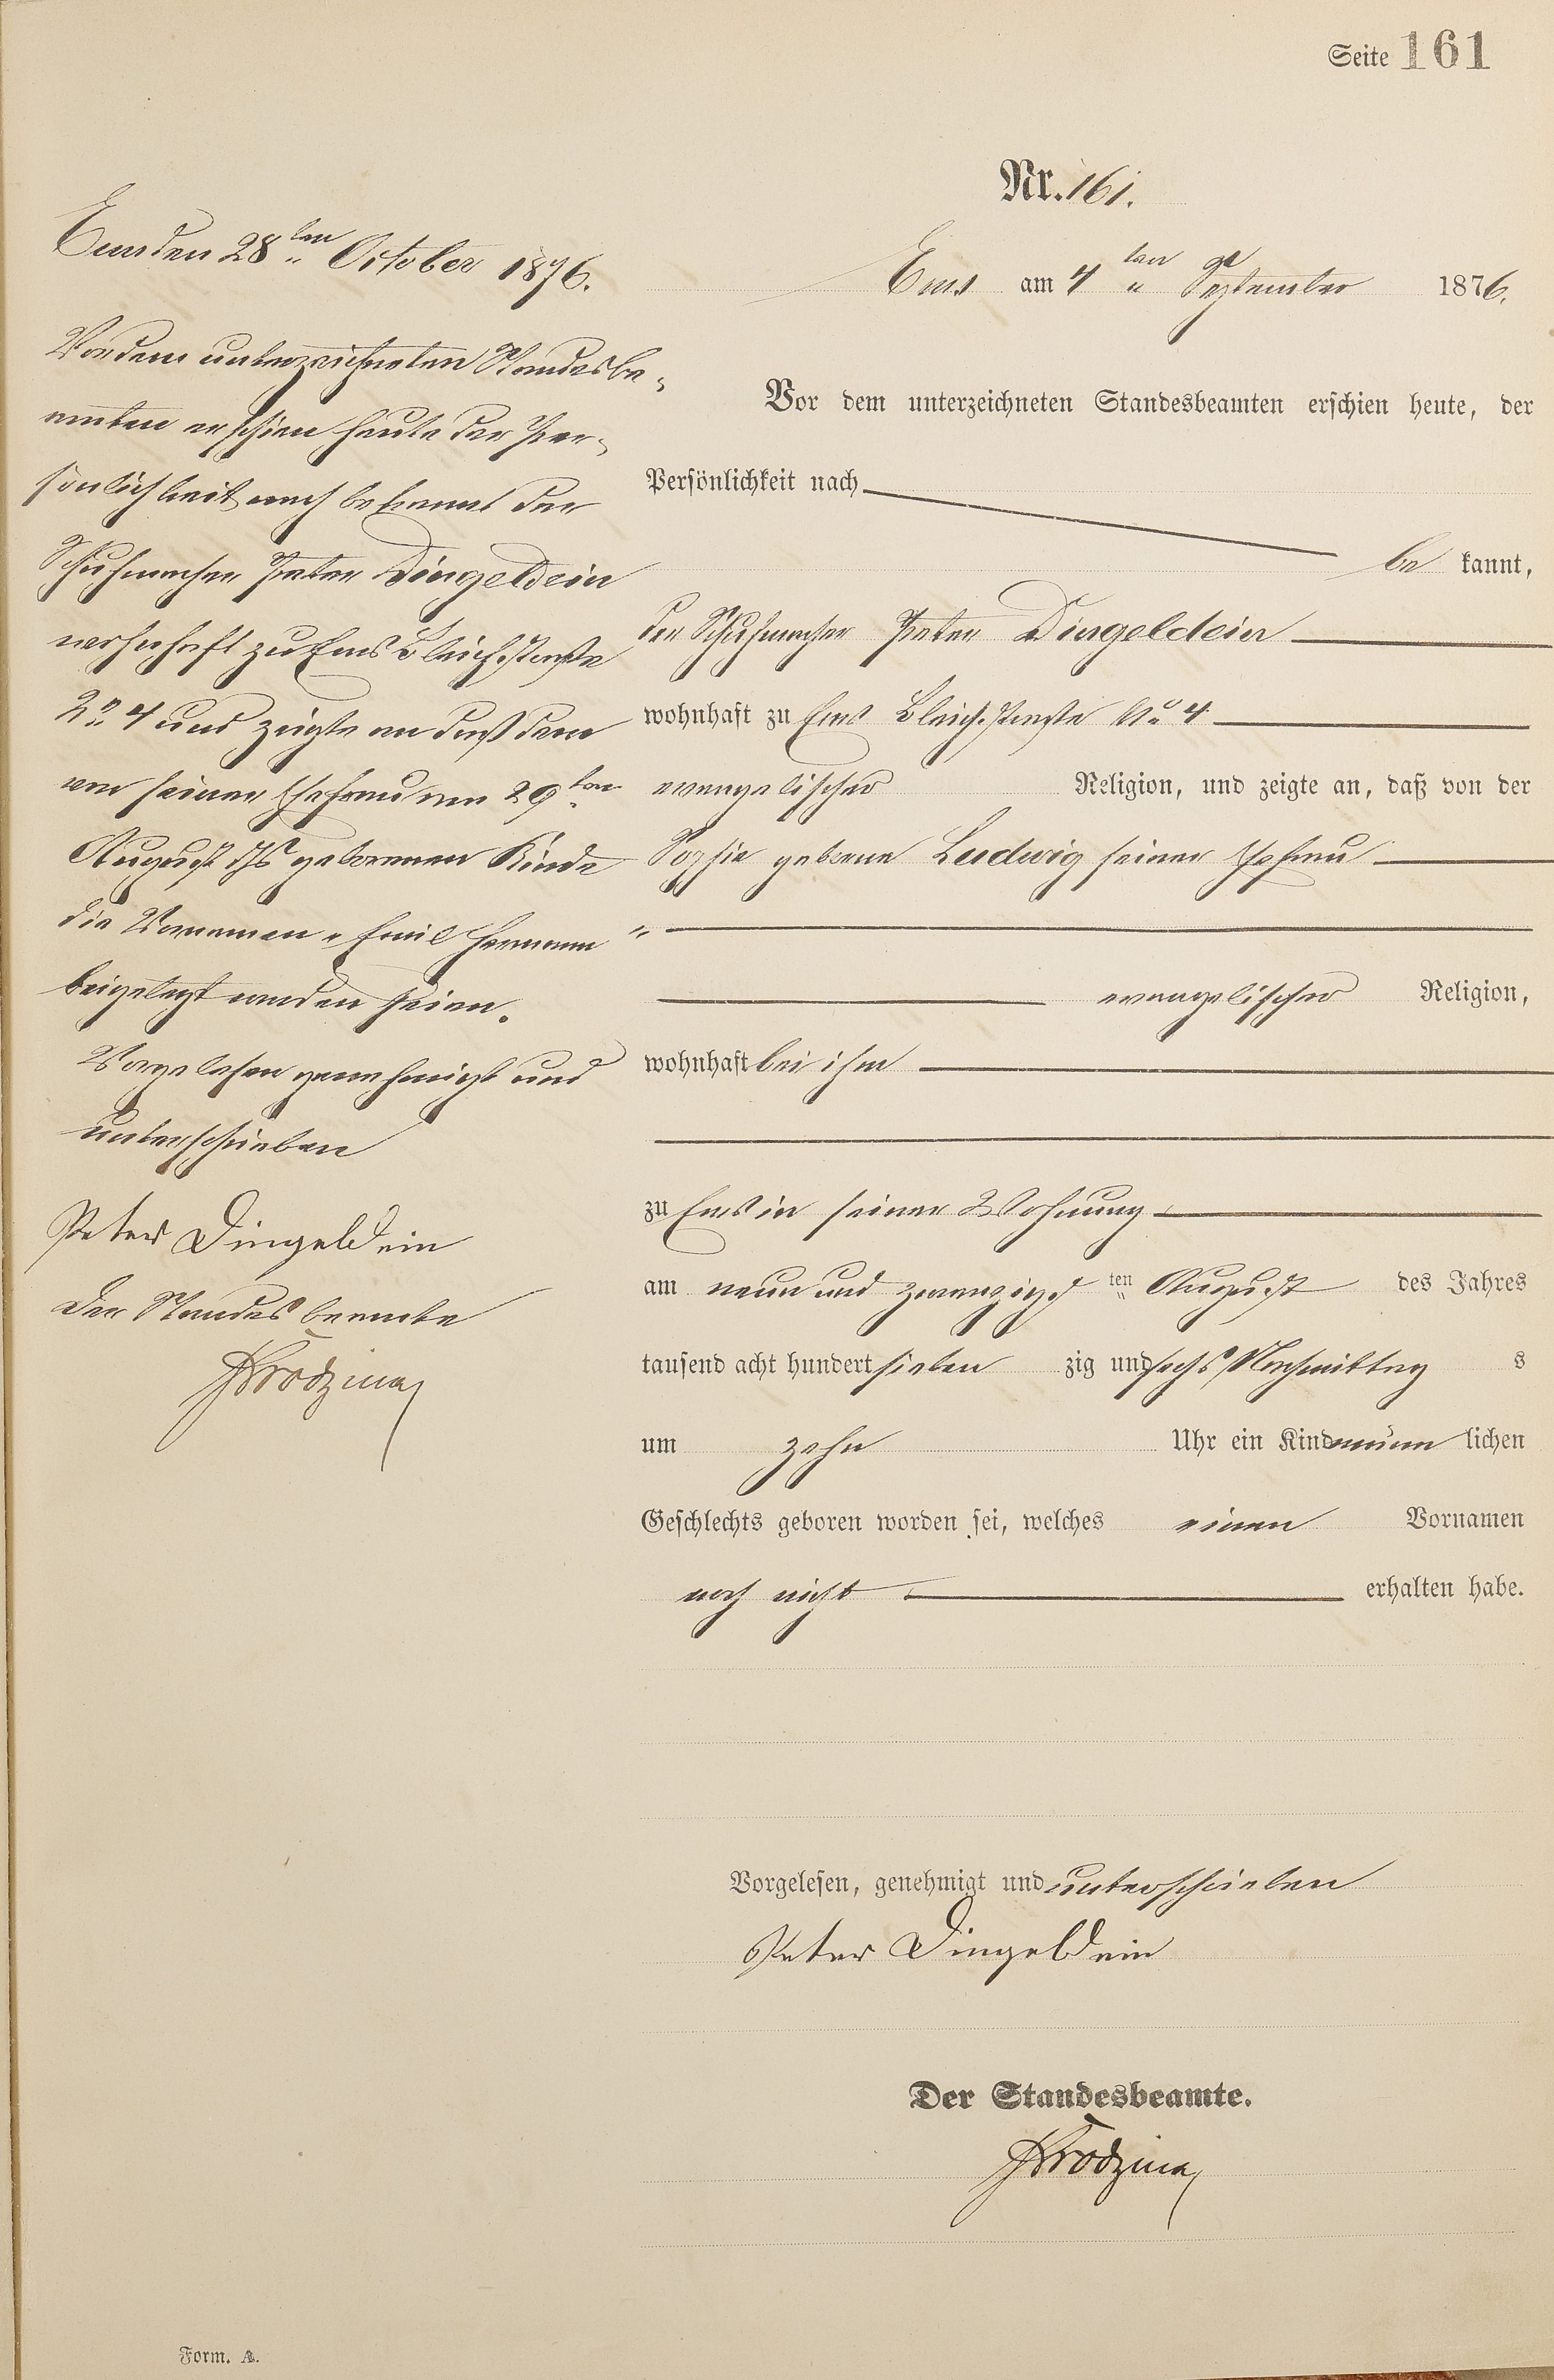 Seite 161
Nr. 161.
Ems am 4ten September 1876.
Vor dem unterzeichneten Standesbeamten erschien heute, der
Persönlichkeit nach
be kannt,
der Schuhmacher Peter Dingeldein
wohnhaft zu Ems Bleichstraße No 4
evangelischer Religion, und zeigte an, daß von der
Sophie geborne Ludwig seiner Ehefrau
evangelischer Religion,
wohnhaft bei ihm
zu Ems in seiner Wohnung
am neun und zwanzigs ten August des Jahres
tausend acht hundert sieben zig und sechs Nachmittag s
um zehn Uhr ein Kind männ lichen
Geschlechts geboren worden sei, welches einen Vornamen
noch nicht erhalten habe.
Vorgelesen, genehmigt und unterschrieben
Peter Dingeldein
Der Standesbeamte.
Ems den 28ten October 1876.
Vor dem unterzeichneten Standesbe-
amten erschien heute der Per-
sönlichkeit nach bekannt der
Schuhmacher Peter Dingeldein
wohnhaft zu Ems Bleichstraße
No 4 und zeigte an daß dem
von seiner Ehefrau am 29ten
August ds Js geborenen Kinde
die Vornamen „Emil Hermann"
beigelegt worden seien.
Vorgelesen genehmigt und
unterschrieben
Peter Dingeldein
Der Standesbeamte
Form. A.